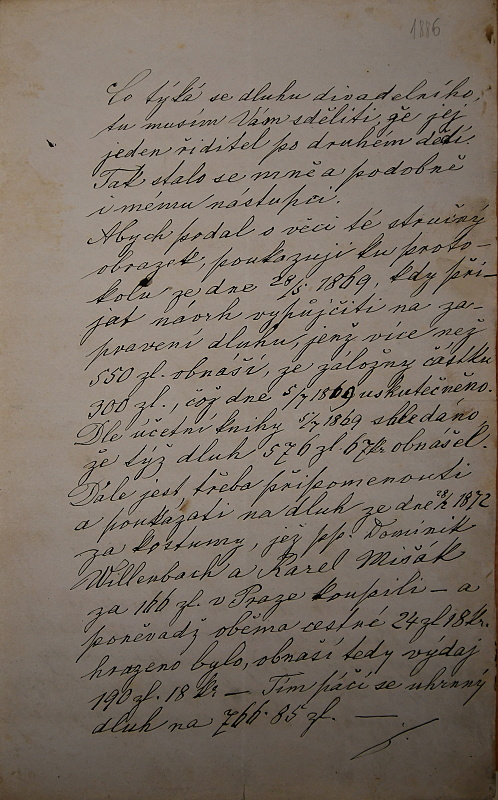 1886
Co týká se dluhu divadelního,
tu musím Vám sděliti, že jej
jeden řiditel po druhém dědí.
Tak stalo se mně a podobně
i mému nástupci.
Abych podal o věci té stručný
obrazek, poukazuji ku proto-
kolu ze dne 28/5 1869, kdy při-
jat navrh vypůjčiti na za-
pravení dluhu, jenž více než
550 zl. obnáší, ze záložny částku
300 zl., což dne 5/7 1869 uskutečněno.
Dle účetní knihy 5/7 1869 shledáno
že týž dluh 576 zl. 67 kr obnášel.
Dále jest třeba připomenouti
a poukázati na dluh ze dne 1872
za kostumy, jež pp. Dominik
Willenbach a Karel Mišák
za 166 zl. v Praze koupili – a
poněvadž oběma cestné 24 zl 18 kr.
hrazeno bylo, obnáší tedy výdaj
190 zl. 18 kr — Tím páčí se uhrnný
dluh na 766·85 zl. —